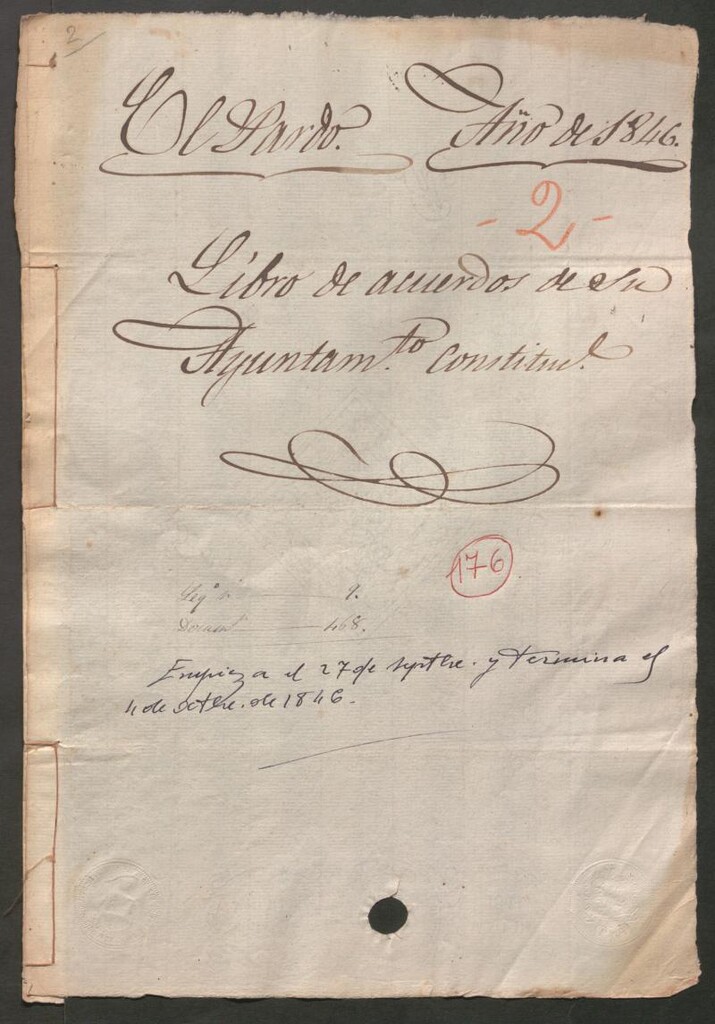 2
El Pardo. Año de 1846.
- 2 -
Libro de acuerdos de su
Ayuntam.to constitucl.
176
Leg.o n.o 9.
Docum.to 468.
Empieza el 27 de septbre. y termina el
4 de octbre. de 1846.